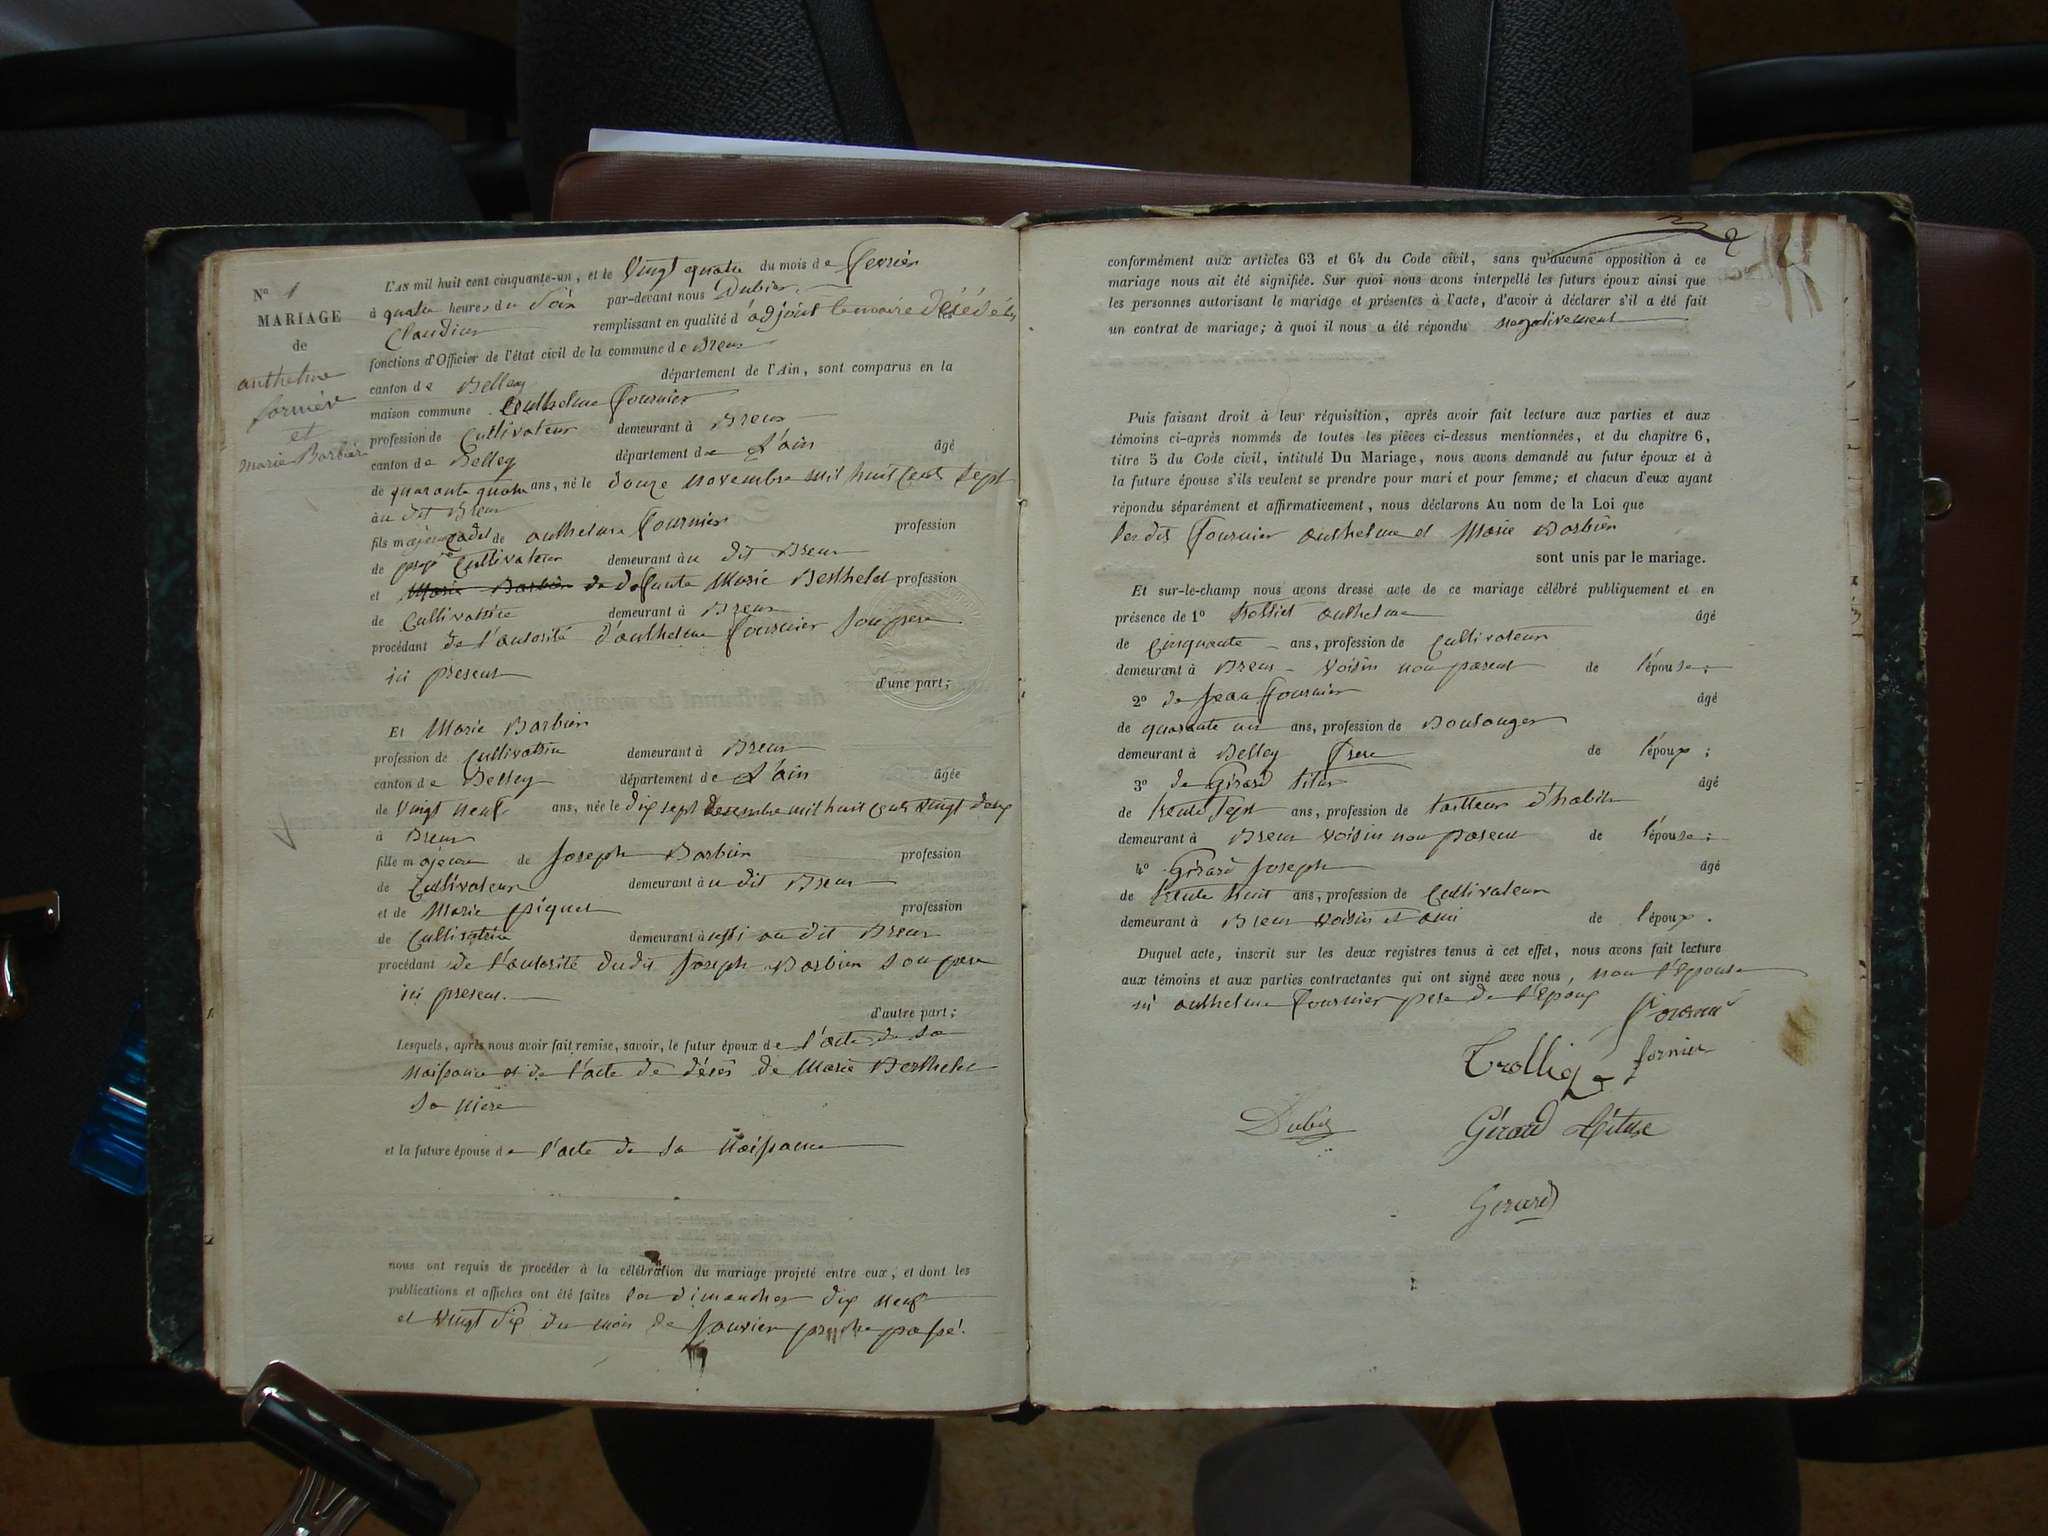 No 1
MARIAGE
de
anthelme
fornier
et
marie Barbier
L'AN mil huit cent cinquante-un, et le vingt quatre du mois de fevrier
à quatre heures du Soir par-devant nous Dubier
Claudius remplissant en qualité d'adjoint le maire les
fonctions d'Officier de l'état civil de la commune de Brens
canton de Belley département de l'Ain, sont comparus en la
maison commune Anthelme fournier
profession de Cultivateur demeurant à Brens
canton de Belley département de L'ain âgé
de quarante quatre ans, né le douze novembre mil huit cent sept
au dit Brens
fils majeur de anthelme fournier profession
de Cultivateur demeurant au dit Brens
et Marie Barbier de defunte Marie Berthelet profession
de Cultivatrice demeurant à Brens
procédant de l'autorité d'anthelme fournier son pere
ici present
d'une part;
Et Marie Barbier
profession de Cultivatrice demeurant à Brens
canton de Belley département de L'ain âgée
de vingt neuf ans, née le dix sept desembre mil huit cent vingt deux
à Brens
fille majeure de Joseph Barbier profession
de Cultivateur demeurant au dit Brens
et de Marie piquet profession
de Cultivatrice demeurant aussi au dit Brens
procédant de l'autorité dudit Joseph Barbier son pere
ici present.
d'autre part;
Lesquels, après nous avoir fait remise, savoir, le futur époux de l'acte de sa
naissance et de l'acte de décès de Marie Berthelet
sa mere
et la future épouse de l'acte de sa naissance
nous ont requis de procéder à la célébration du mariage projeté entre eux, et dont les
publications et affiches ont été faites les dimanches dix neuf
et vingt six du mois de janvier passé.
conformément aux articles 63 et 64 du Code civil, sans qu'aucune opposition à ce
mariage nous ait été signifiée. Sur quoi nous avons interpellé les futurs époux ainsi que
les personnes autorisant le mariage et présentes à l'acte, d'avoir à déclarer s'il a été fait
un contrat de mariage; à quoi il nous a été répondu negativement
Puis faisant droit à leur réquisition, après avoir fait lecture aux parties et aux
témoins ci-après nommés de toutes les pièces ci-dessus mentionnées, et du chapitre 6,
titre 5 du Code civil, intitulé Du Mariage, nous avons demandé au futur époux et à
la future épouse s'ils veulent se prendre pour mari et pour femme; et chacun d'eux ayant
répondu séparément et affirmativement, nous déclarons Au nom de la Loi que
les dits fournier anthelme et Marie Barbier
sont unis par le mariage.
Et sur-le-champ nous avons dressé acte de ce mariage célébré publiquement et en
présence de 1o Trolliet anthelme âgé
de Cinquante ans, profession de Cultivateur
demeurant à Brens voisin non parent de l'épouse;
2o de Jean fournier âgé
de quarante un ans, profession de Boulanger
demeurant à Belley frere de l'époux;
3o de Girard titus âgé
de trente sept ans, profession de tailleur d'habits
demeurant à Brens voisin non parent de l'épouse;
4o Girard Joseph âgé
de trente huit ans, profession de Cultivateur
demeurant à Brens voisin et ami de l'époux.
Duquel acte, inscrit sur les deux registres tenus à cet effet, nous avons fait lecture
aux témoins et aux parties contractantes qui ont signé avec nous, non l'epouse
ni anthelme fournier pere de l'Epoux
fornier
Girard
Gerard